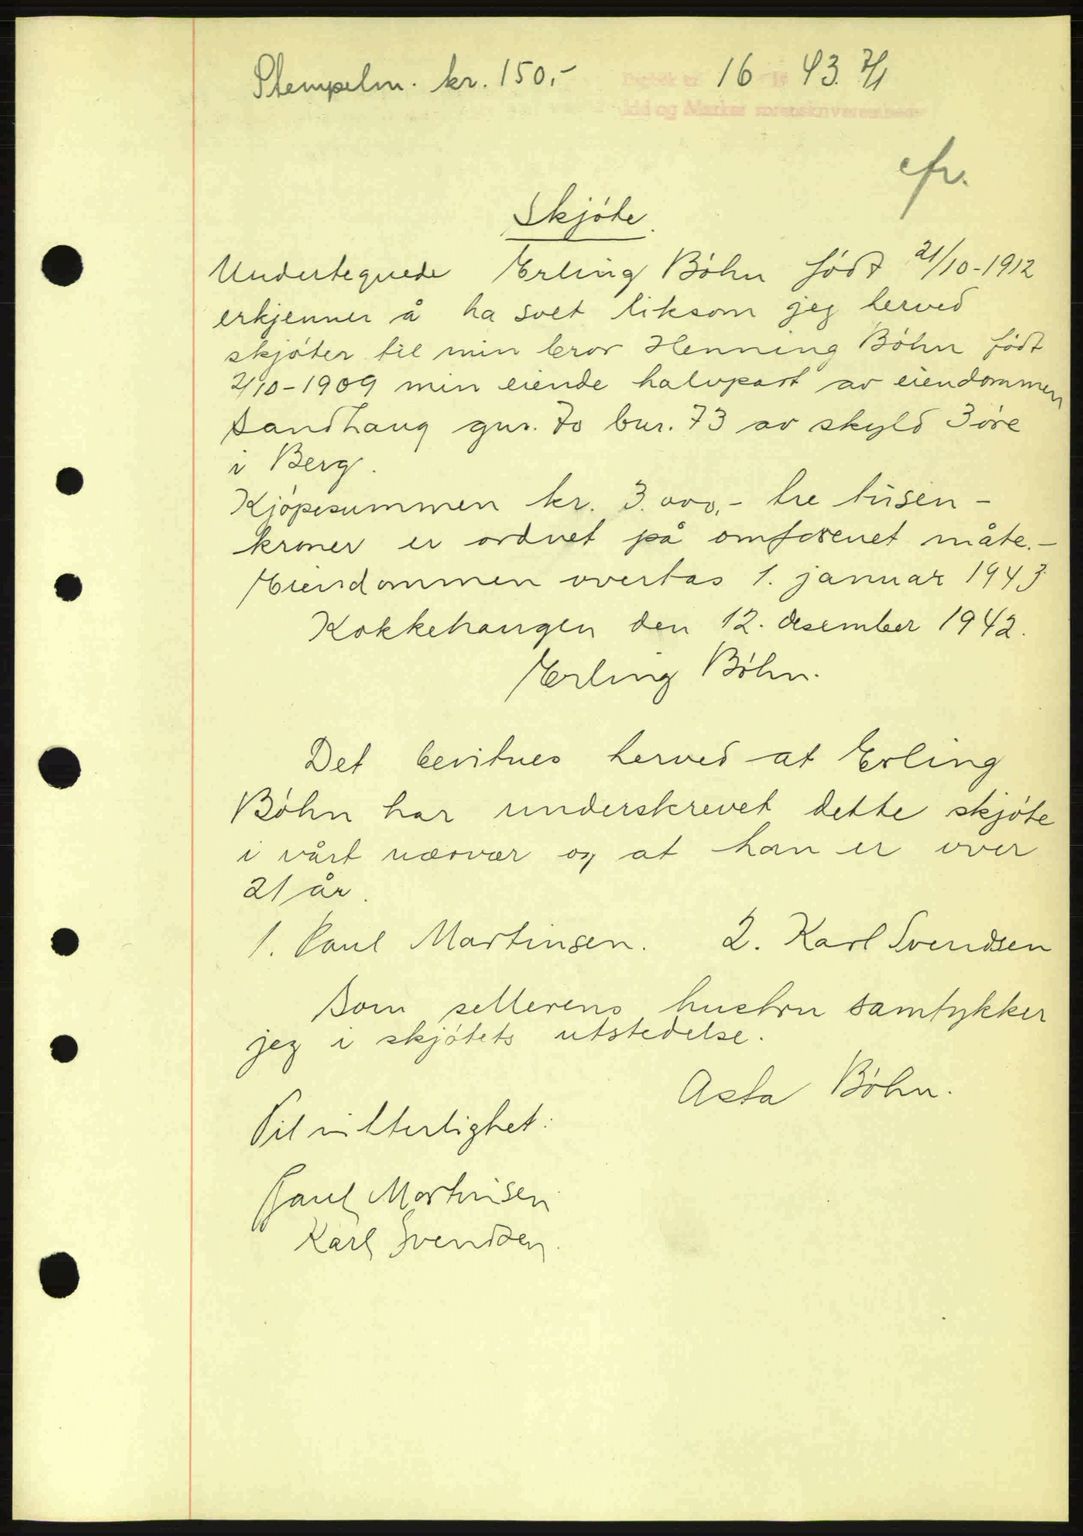 Stempelm. kr. 150,-
Dagbok nr. 16 19 43. 7/1
Idd og Marker sorenskriverembede
cfr.
Skjøte.
Undertegnede Erling Bøhn født 21/10-1912
erkjenner å ha solt liksom jeg herved
skjøter til min bror Henning Bøhn født
2/10-1909 min eiende halvpart av eiendommen
Sandhaug gnr. 70 bnr. 73 av skyld 3 øre
i Berg.
Kjøpesummen kr. 3.000,- tre tusen -
kroner er ordnet på omforenet måte.-
Eiendommen overtas 1. januar 1943
Kokkehaugen den 12. desember 1942.
Erling Bøhn.
Det bevitnes herved at Erling
Bøhn har underskrevet dette skjøte
i vårt nærvær og at han er over
21 år.
1. Paul Martinsen. 2. Karl Svendsen
Som sellerens hustru samtykker
jeg i skjøtets utstedelse.
Asta Bøhn.
Til vitterlighet:
Paul Martinsen
Karl Svendsen.